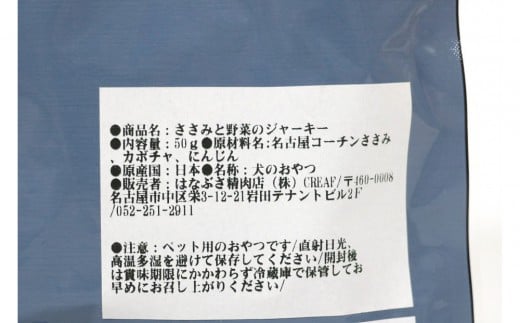 ●商品名：ささみと野菜のジャーキー
●内容量：50g●原材料名:名古屋コーチンささみ
、カボチャ、にんじん
●原産国：日本●名称：犬のおやつ
●販売者：はなぶさ精肉店（株）CREAF/〒460-0008
名古屋市中区栄3-12-21岩田テナントビル2F
/052-251-2911
●注意：ペット用のおやつです/直射日光、
高温多湿を避けて保存してください/開封後
は賞味期限にかかわらず冷蔵庫で保管してお
早めにお召し上がりください/